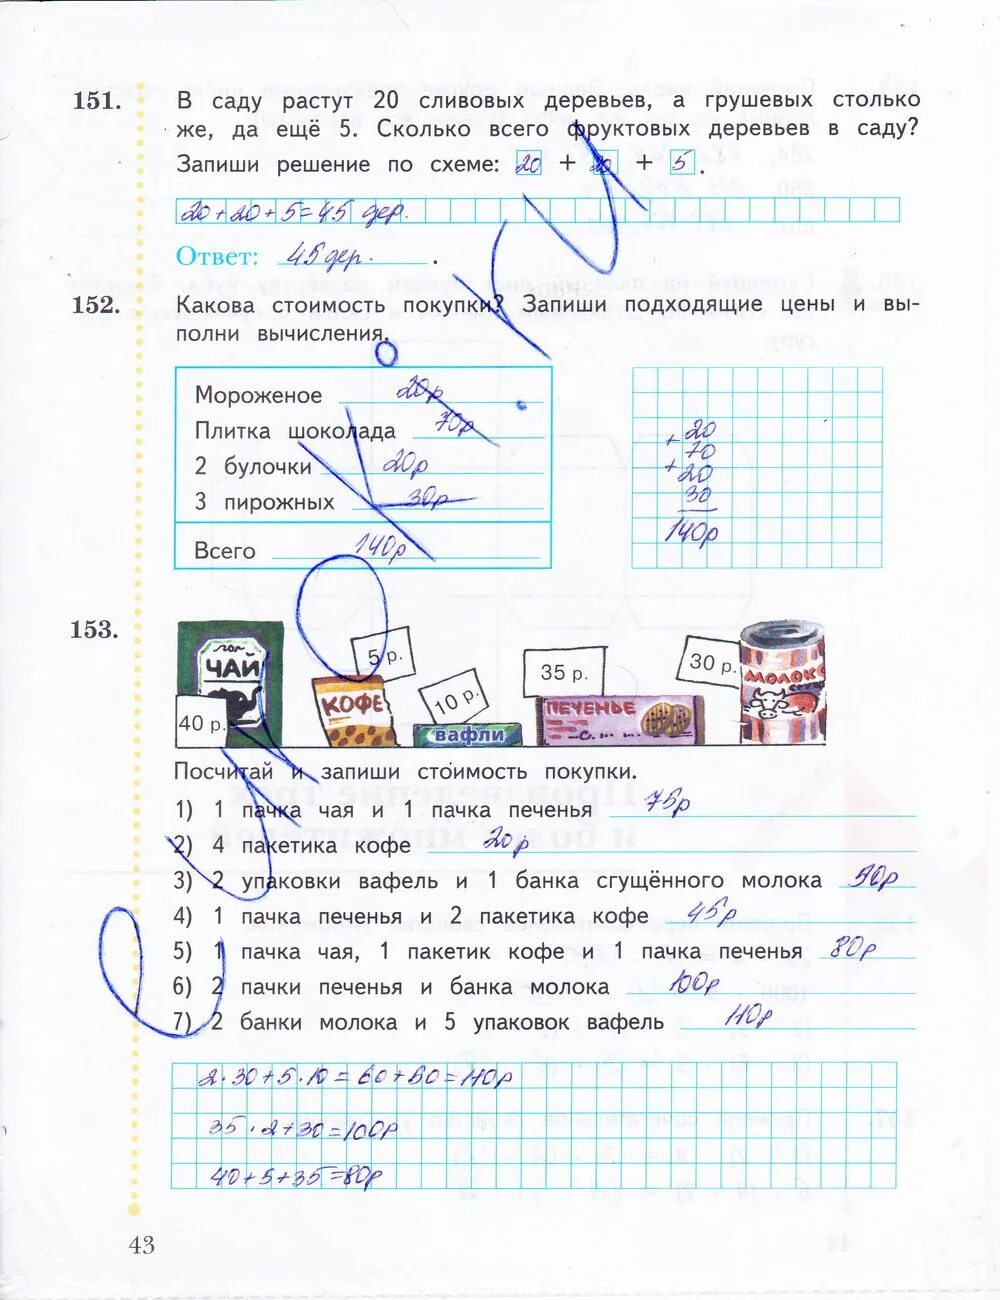 151. В саду растут 20 сливовых деревьев, а грушевых столько
же, да ещё 5. Сколько всего фруктовых деревьев в саду?
Запиши решение по схеме: 20 + 20 + 5 .
20+20+5=45 дер.
Ответ: 45 дер. .
152. Какова стоимость покупки? Запиши подходящие цены и вы-
полни вычисления.
Мороженое 20р
Плитка шоколада 70р
2 булочки 20р
3 пирожных 30р
Всего 140р
+ 20
70
+ 20
30
140р
153.
ЧАЙ
40 р.
КОФЕ
5 р.
10 р.
вафли
35 р.
ПЕЧЕНЬЕ
30 р.
МОЛОКО
Посчитай и запиши стоимость покупки.
1) 1 пачка чая и 1 пачка печенья 75р
2) 4 пакетика кофе 20р
3) 2 упаковки вафель и 1 банка сгущённого молока 50р
4) 1 пачка печенья и 2 пакетика кофе 45р
5) 1 пачка чая, 1 пакетик кофе и 1 пачка печенья 80р
6) 2 пачки печенья и банка молока 100р
7) 2 банки молока и 5 упаковок вафель 110р
2·30+5·10=60+50=110р
35·2+30=100р
40+5+35=80р
43